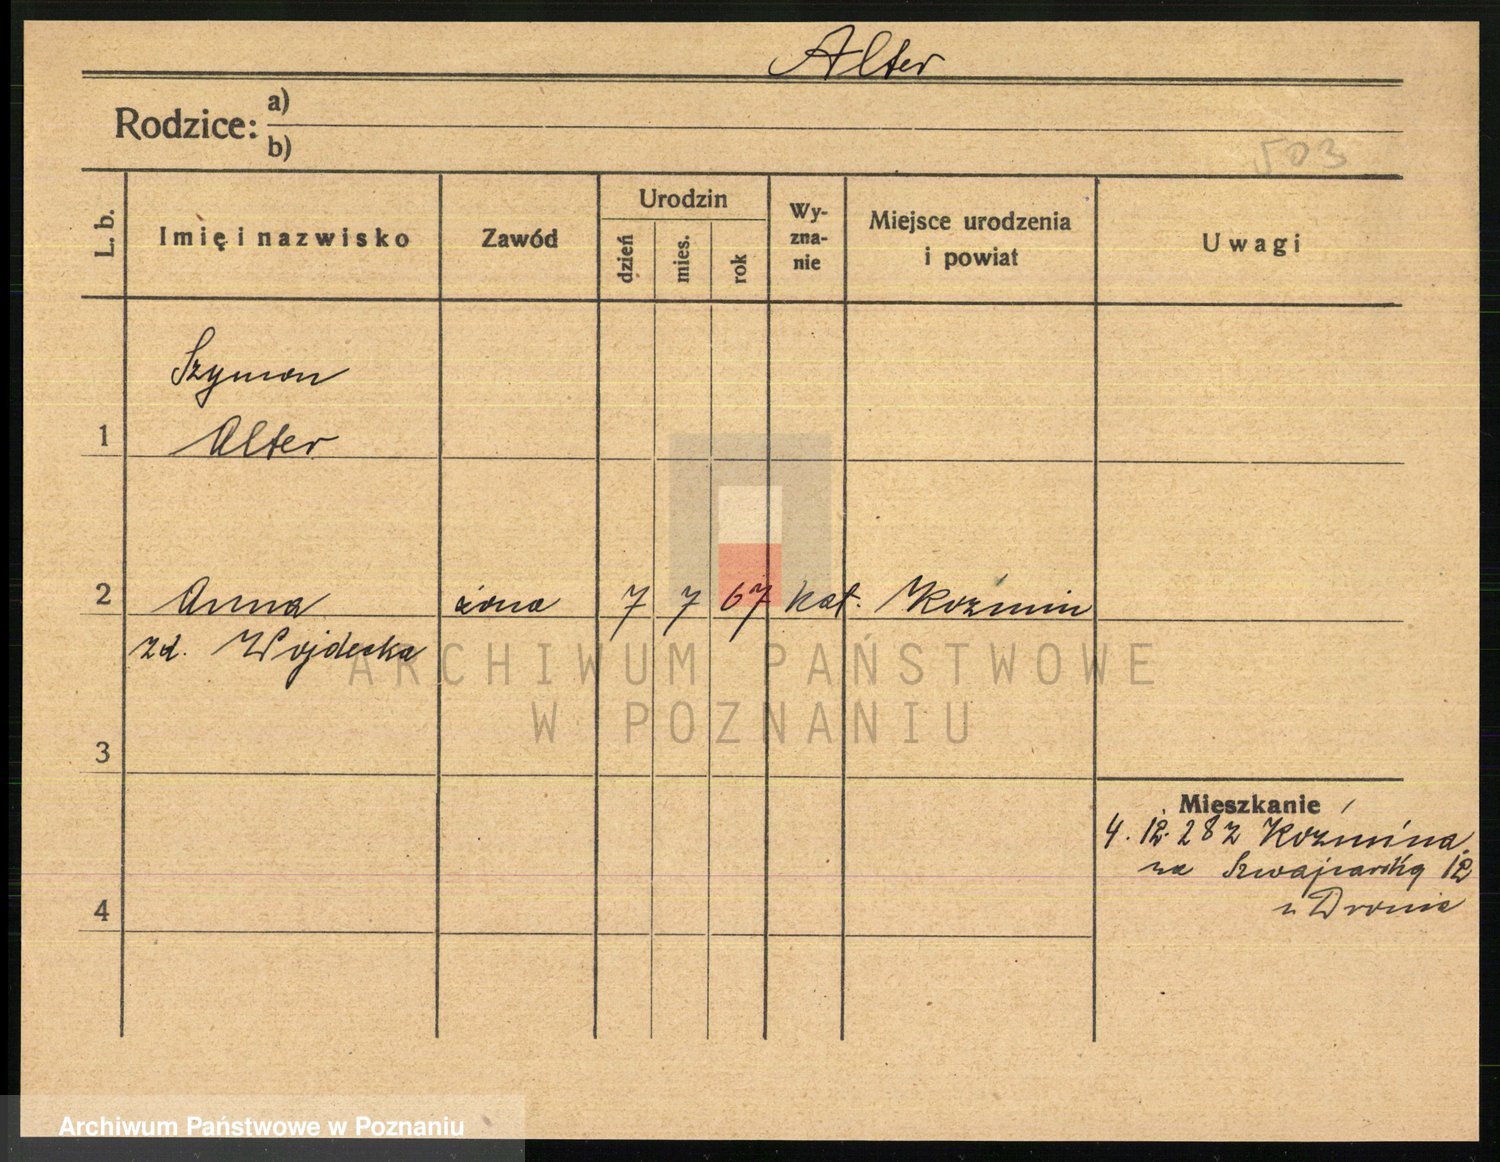 Alter
Rodzice: a)
b)
503
L. b.
Imię i nazwisko
Zawód
Urodzin
dzień
mies.
rok
Wy-
zna-
nie
Miejsce urodzenia
i powiat
Uwagi
Szymon
1 Alter
2 Anna żona 7 7 67 kat. Koźmin
zd. Wojdecka
3
Mieszkanie
4. 12. 28 z Koźmina
na Szwajcarską 12
u Dronia
4
ARCHIWUM PAŃSTWOWE
W POZNANIU
Archiwum Państwowe w Poznaniu